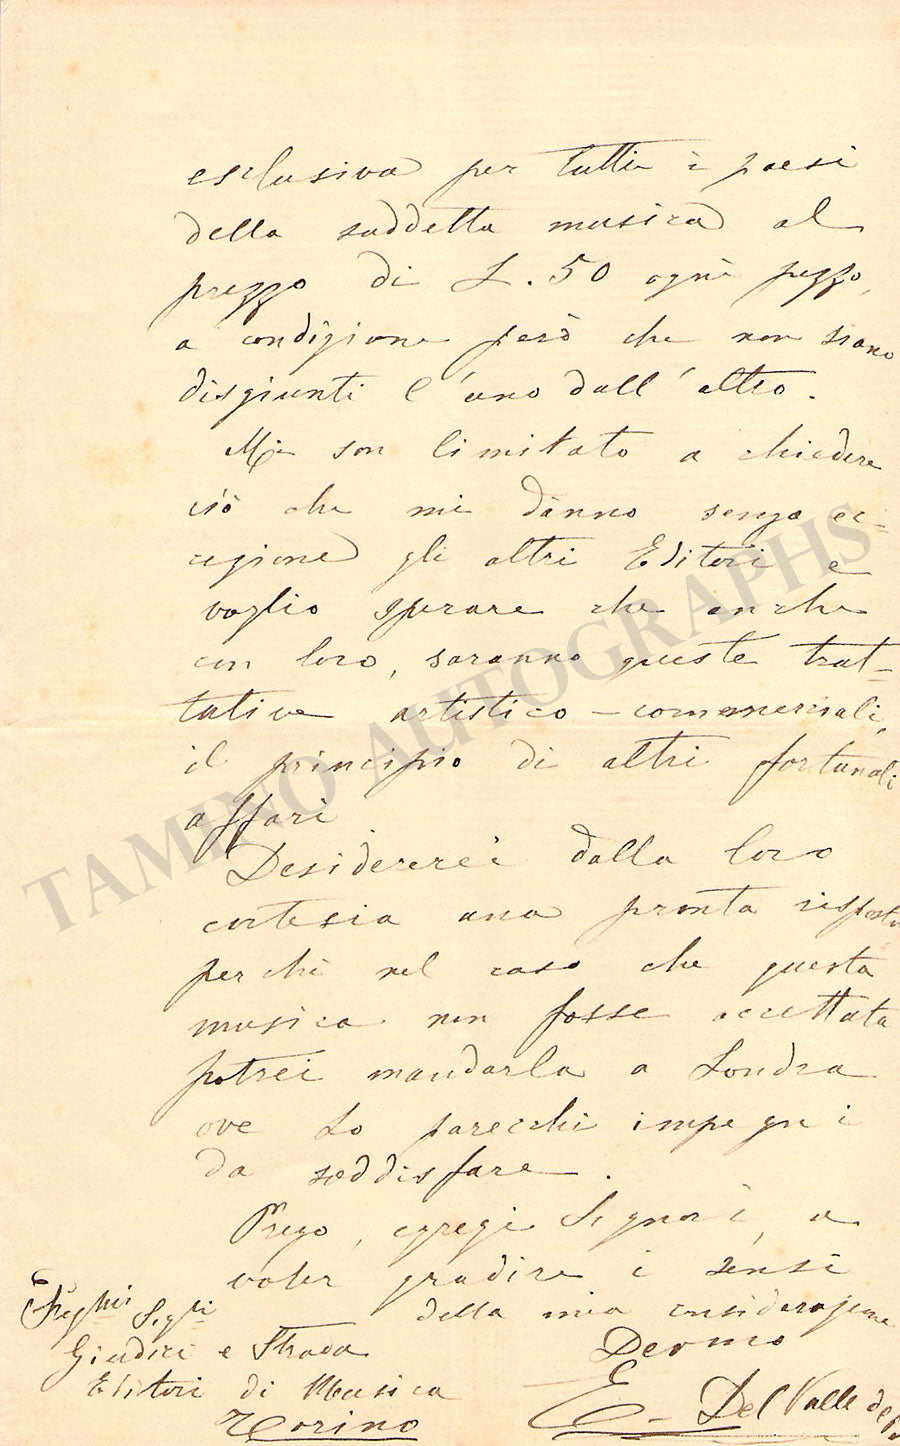 esclusiva per tutti i paesi
della suddetta musica al
prezzo di L. 50 ogni pezzo,
a condizione però che non siano
disgiunti l'uno dall'altro.
Mi son limitato a chiedere
ciò che mi dànno senza ec-
cezione gli altri Editori e
voglio sperare che anche
con loro, saranno queste trat-
tative artistico-commerciali,
il principio di altri fortunati
affari
Desidererei dalla loro
cortesia una pronta risposta
perchè nel caso che questa
musica non fosse accettata
potrei mandarla a Londra
ove ho parecchi impegni
da soddisfare.
Prego, egregi Signori, a
voler gradire i sensi
della mia considerazione
Devmo
E. Del Valle de
Preghi Sigri
Giudici e Strada
Editori di Musica
Torino
TAMINO AUTOGRAPHS